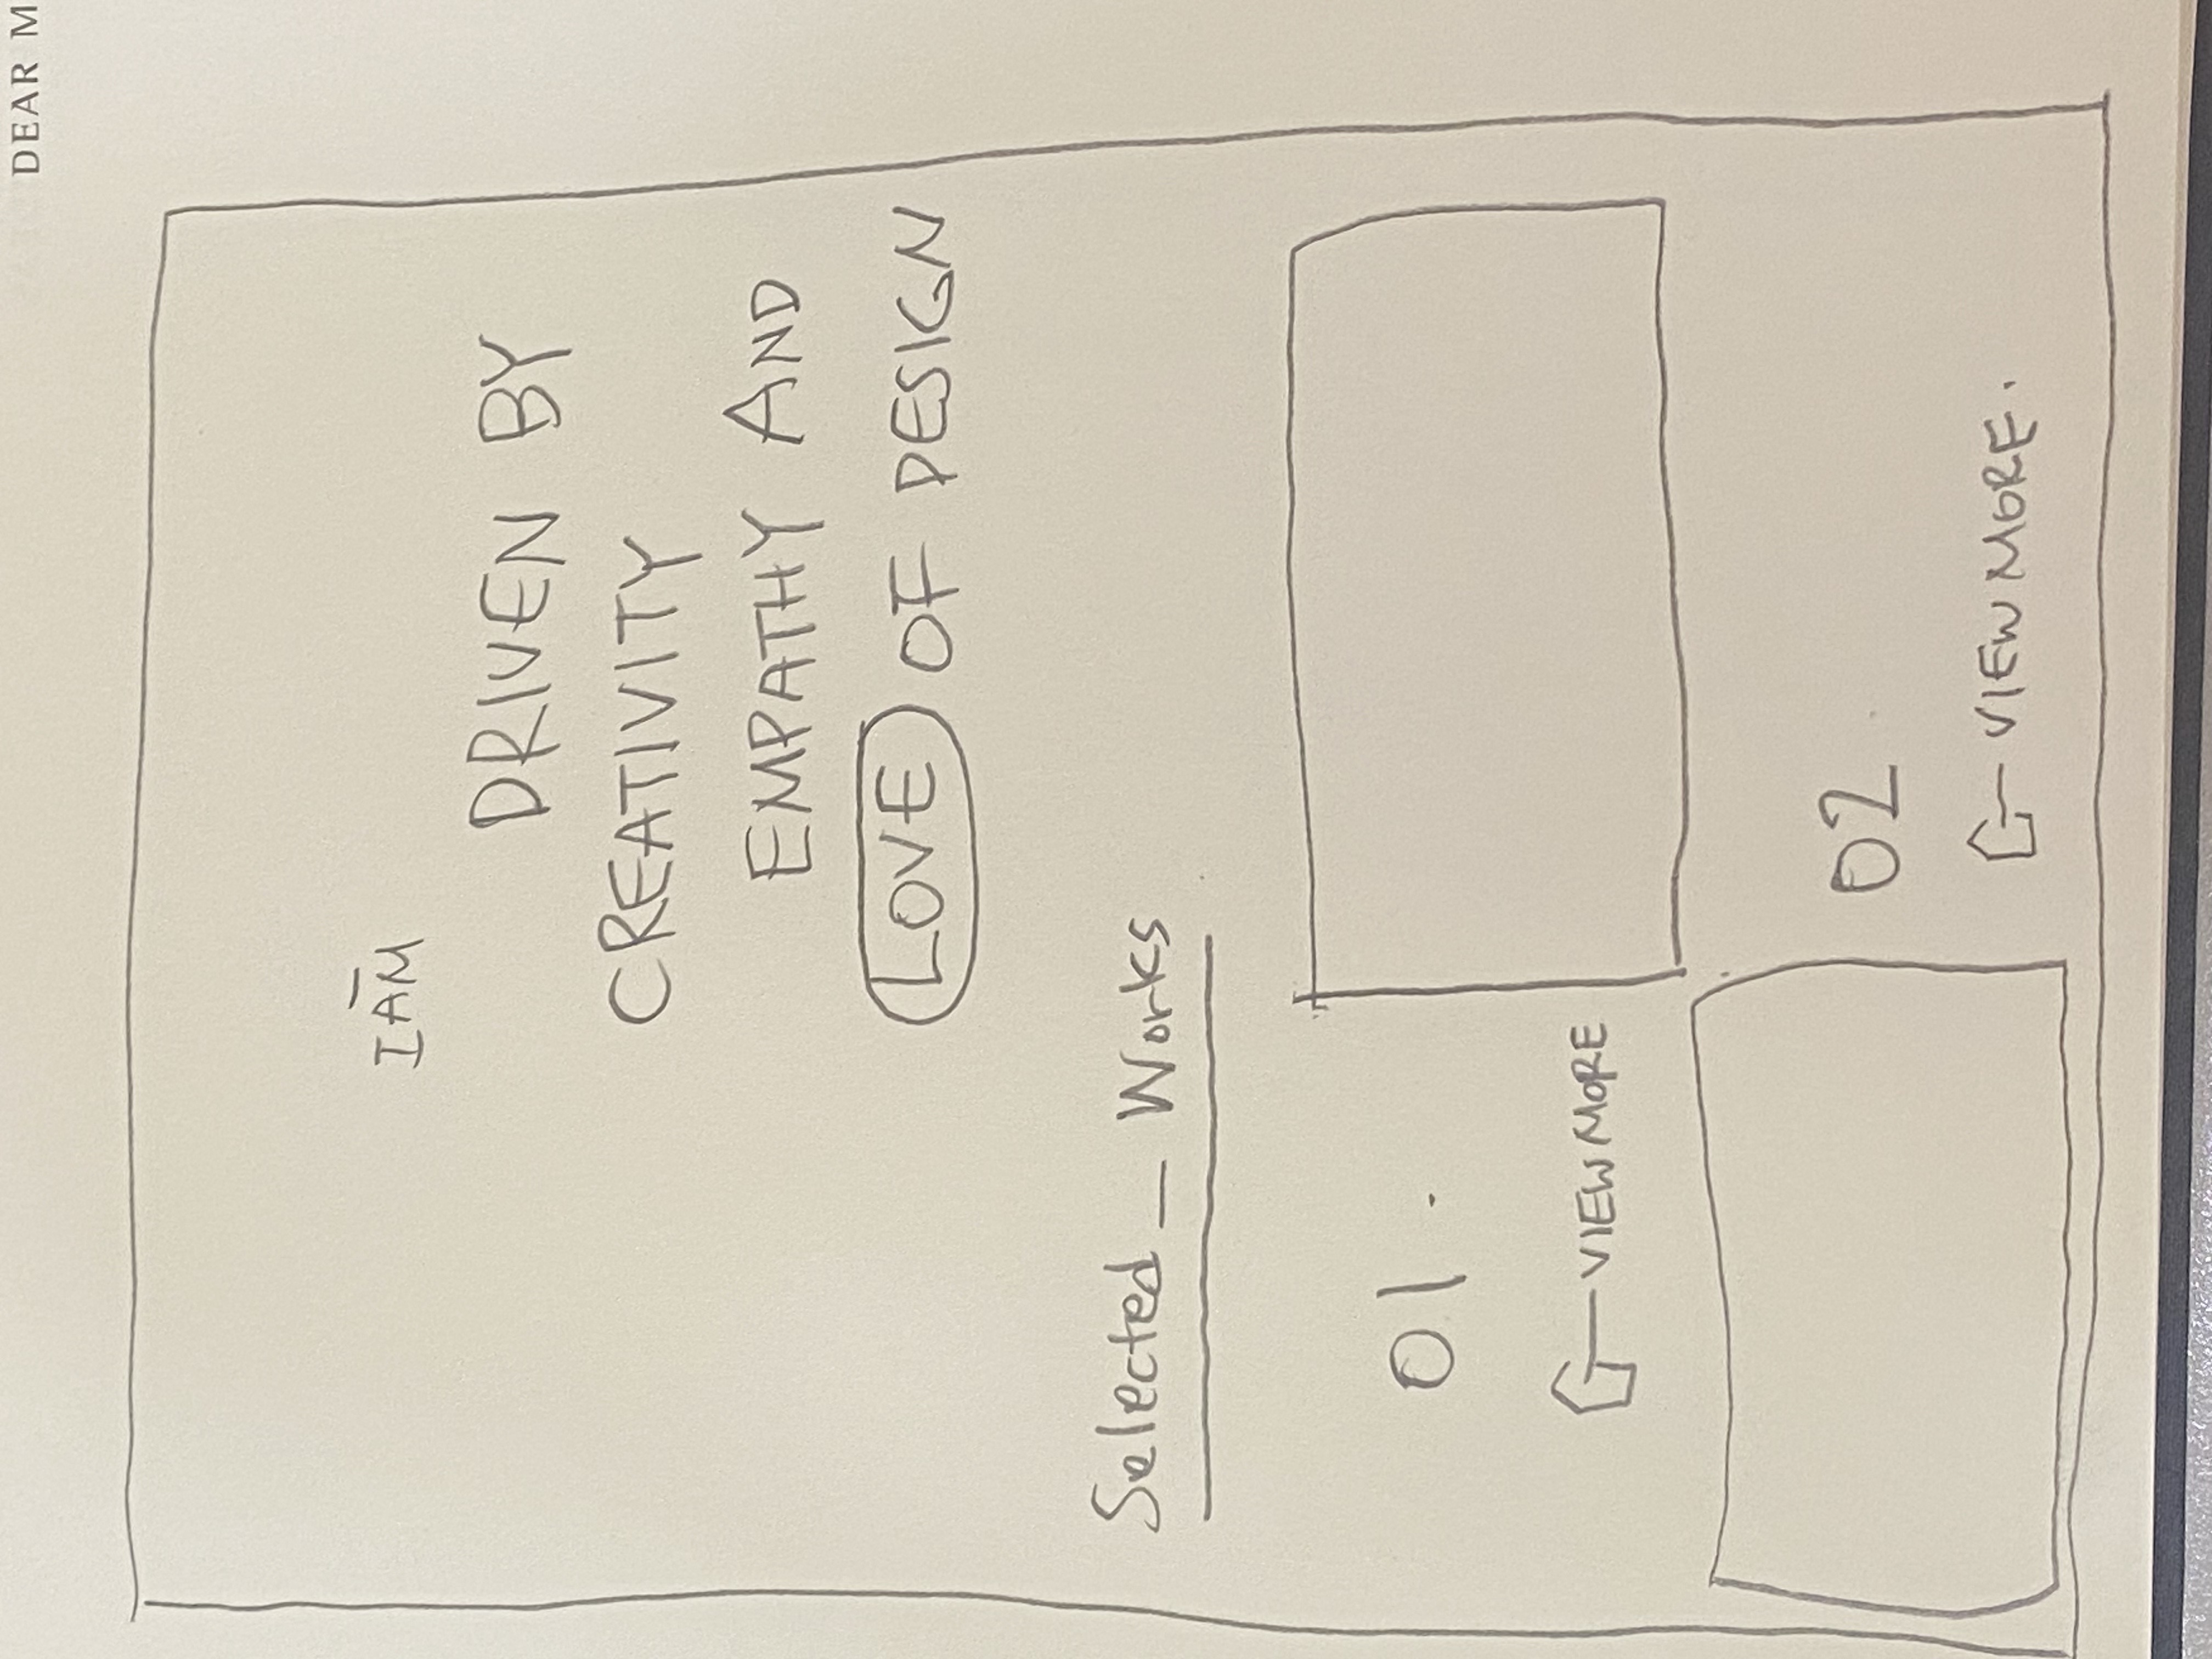 DEAR M
I AM
DRIVEN BY
CREATIVITY
EMPATHY AND
LOVE OF DESIGN
Selected _ Works
01.
VIEW MORE
02
VIEW MORE.